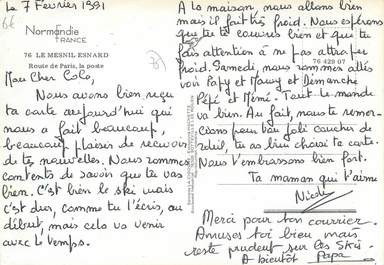 Le 7 Février 1991
66
Normandie
FRANCE
76 LE MESNIL ESNARD
Route de Paris, la poste
76 429 07
Mon Cher Colo,
Nous avons bien reçu
ta carte aujourd'hui qui
nous a fait beaucoup,
beaucoup plaisir de recevoir
de tes nouvelles. Nous sommes
contents de savoir que tu vas
bien. C'est bien le ski mais
c'est dur, comme tu l'écris, au
début, mais cela va venir
avec le temps.
A la maison, nous allons bien
mais il fait très froid. Nous espérons
que tu te couvres bien et que tu
fais attention à ne pas attraper
froid. Samedi, nous sommes allés
voir Papy et Mamy et Dimanche
Pépé et Mémé. Tout le monde
va bien. Au fait, nous te remer-
cions pour ton joli coucher de
soleil, tu as bien choisi ta carte.
Nous t'embrassons bien fort.
Ta maman qui t'aime
Nicole
Merci pour ton courrier.
Amuses toi bien mais
reste prudent sur les skis
A bientôt Papa